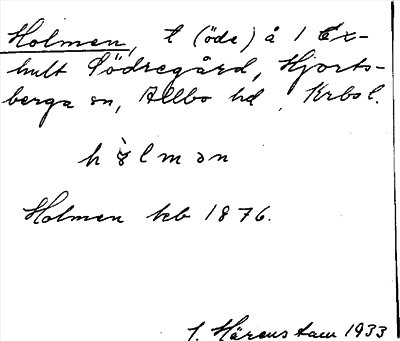 Holmen, t (öde) å 1 Ex-
hult Södregård, Hjorts-
berga sn, Allbo hd, Krbs l.
hòlmən
Holmen kb 1876.
1933